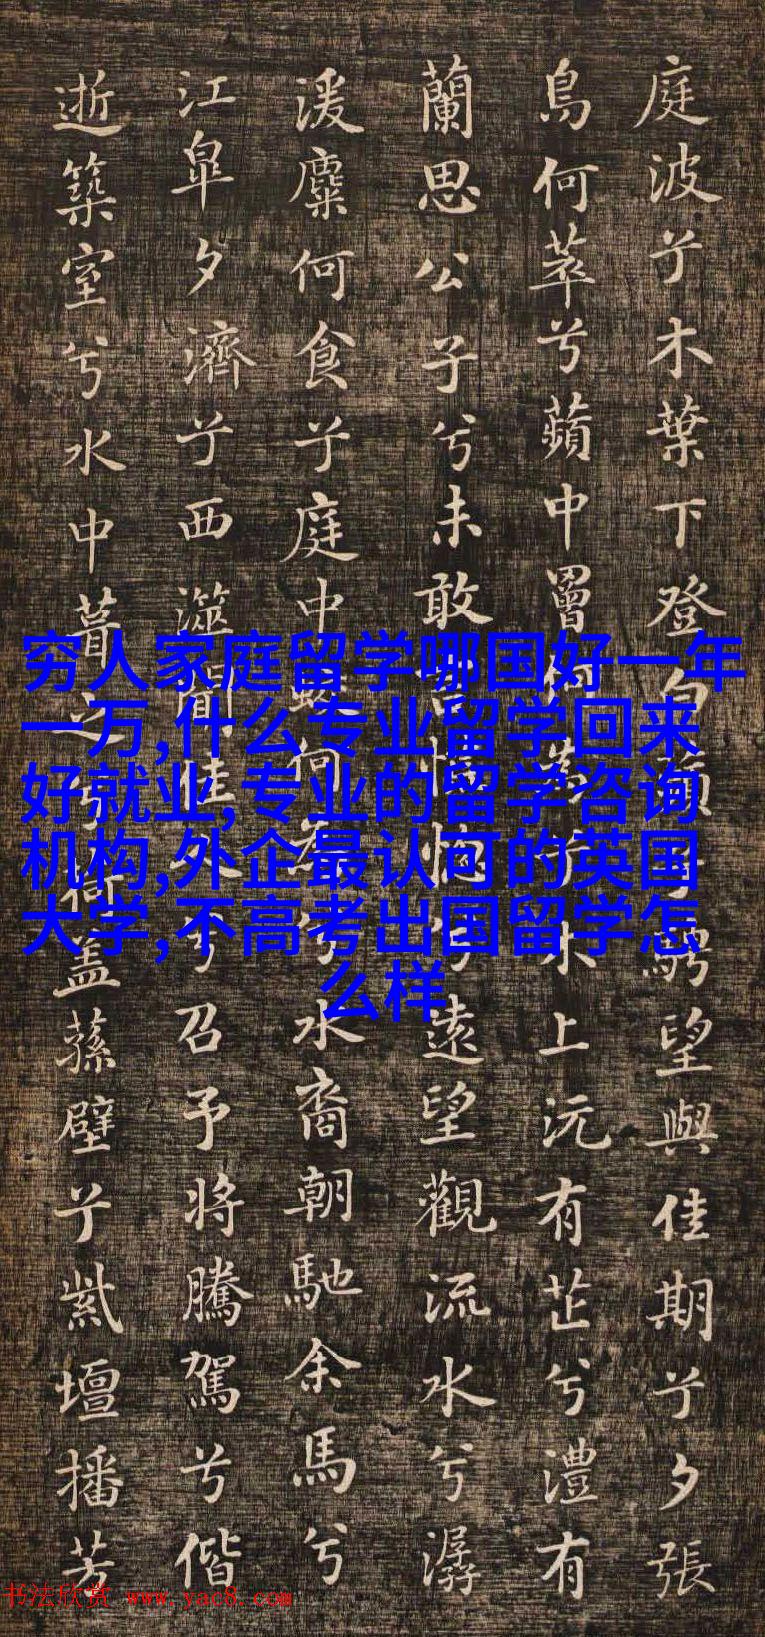 庭波兮木葉下登白蘋兮騁望與佳期兮夕張
鳥何萃兮蘋中罾何為兮木上沅有芷兮澧有
蘭思公子兮未敢言怳惚兮遠望觀流水兮潺
湲麋何食兮庭中蛟何為兮水裔朝馳余馬兮
江皐夕濟兮西澨聞佳人兮召予將騰駕兮偕
逝築室兮水中葺之兮荷盖蓀壁兮紫壇播芳
穷人家庭留学哪国好一年
一万,什么专业留学回来
好就业,专业的留学咨询
机构,外企最认可的英国
大学,不高考出国留学怎
么样
书法欣赏 www.yac8.com